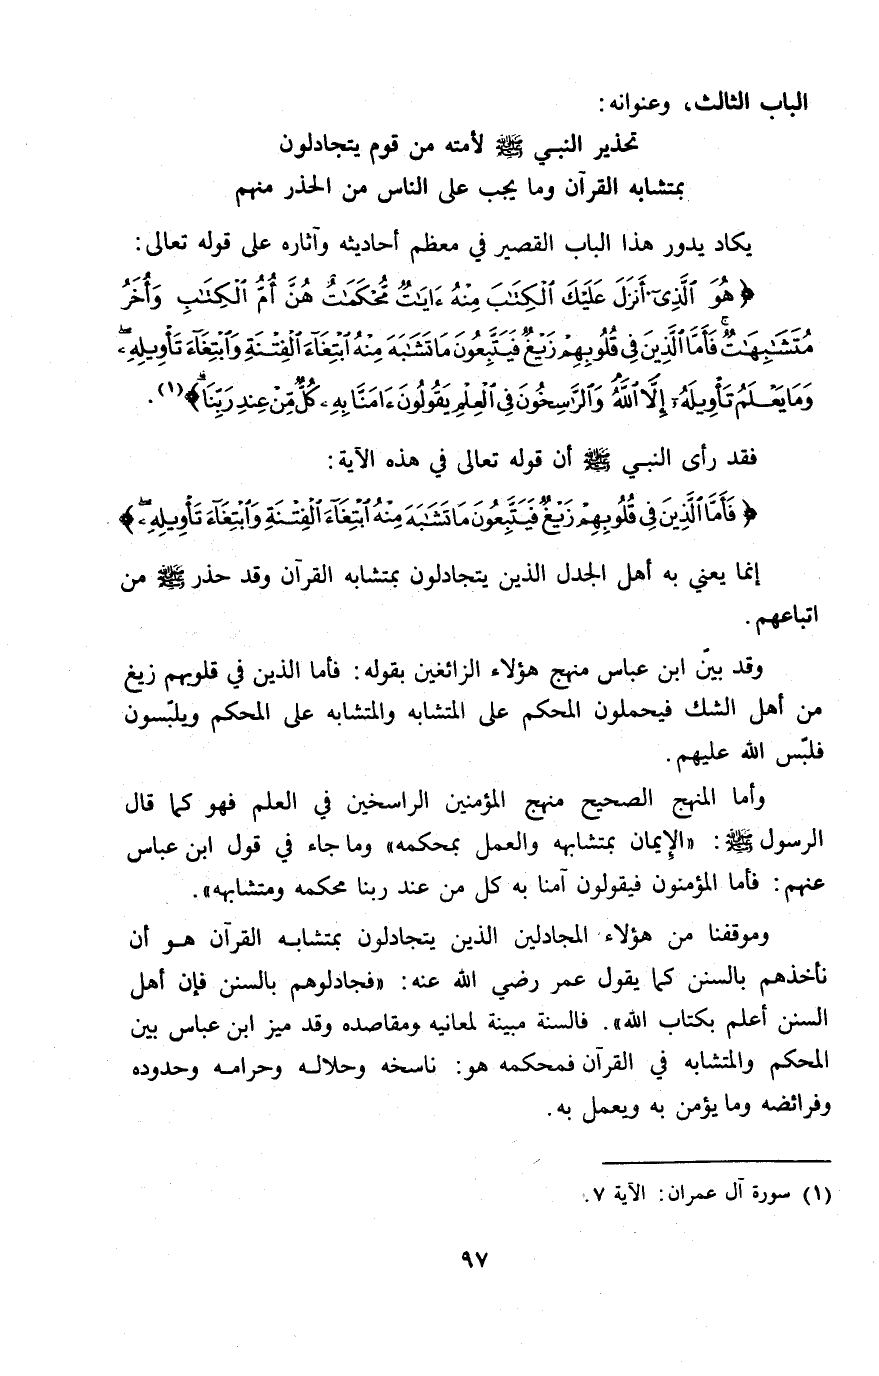 الباب الثالث، وعنوانه:
تحذير النبي ﷺ لأمته من قوم يتجادلون
بمتشابه القرآن وما يجب على الناس من الحذر منهم
يكاد يدور هذا الباب القصير في معظم أحاديثه وآثاره على قوله تعالى:
﴿هُوَ ٱلَّذِىٓ أَنزَلَ عَلَيْكَ ٱلْكِتَٰبَ مِنْهُ ءَايَٰتٌ مُّحْكَمَٰتٌ هُنَّ أُمُّ ٱلْكِتَٰبِ وَأُخَرُ
مُتَشَٰبِهَٰتٌ ۖ فَأَمَّا ٱلَّذِينَ فِى قُلُوبِهِمْ زَيْغٌ فَيَتَّبِعُونَ مَا تَشَٰبَهَ مِنْهُ ٱبْتِغَآءَ ٱلْفِتْنَةِ وَٱبْتِغَآءَ تَأْوِيلِهِۦ ۗ
وَمَا يَعْلَمُ تَأْوِيلَهُۥٓ إِلَّا ٱللَّهُ ۗ وَٱلرَّٰسِخُونَ فِى ٱلْعِلْمِ يَقُولُونَ ءَامَنَّا بِهِۦ كُلٌّ مِّنْ عِندِ رَبِّنَا ۗ﴾(١).
فقد رأى النبي ﷺ أن قوله تعالى في هذه الآية:
﴿فَأَمَّا ٱلَّذِينَ فِى قُلُوبِهِمْ زَيْغٌ فَيَتَّبِعُونَ مَا تَشَٰبَهَ مِنْهُ ٱبْتِغَآءَ ٱلْفِتْنَةِ وَٱبْتِغَآءَ تَأْوِيلِهِۦ ۗ﴾.
إنما يعني به أهل الجدل الذين يتجادلون بمتشابه القرآن وقد حذر ﷺ من
اتباعهم.
وقد بيّن ابن عباس منهج هؤلاء الزائغين بقوله: فأما الذين في قلوبهم زيغ
من أهل الشك فيحملون المحكم على المتشابه والمتشابه على المحكم ويلبّسون
فلبّس الله عليهم.
وأما المنهج الصحيح منهج المؤمنين الراسخين في العلم فهو كما قال
الرسول ﷺ: «الإيمان بمتشابهه والعمل بمحكمه» وما جاء في قول ابن عباس
عنهم: فأما المؤمنون فيقولون آمنا به كل من عند ربنا محكمه ومتشابهه».
وموقفنا من هؤلاء المجادلين الذين يتجادلون بمتشابه القرآن هو أن
نأخذهم بالسنن كما يقول عمر رضي الله عنه: «فجادلوهم بالسنن فإن أهل
السنن أعلم بكتاب الله». فالسنة مبينة لمعانيه ومقاصده وقد ميز ابن عباس بين
المحكم والمتشابه في القرآن فمحكمه هو: ناسخه وحلاله وحرامه وحدوده
وفرائضه وما يؤمن به ويعمل به.
(١) سورة آل عمران: الآية ٧.
٩٧